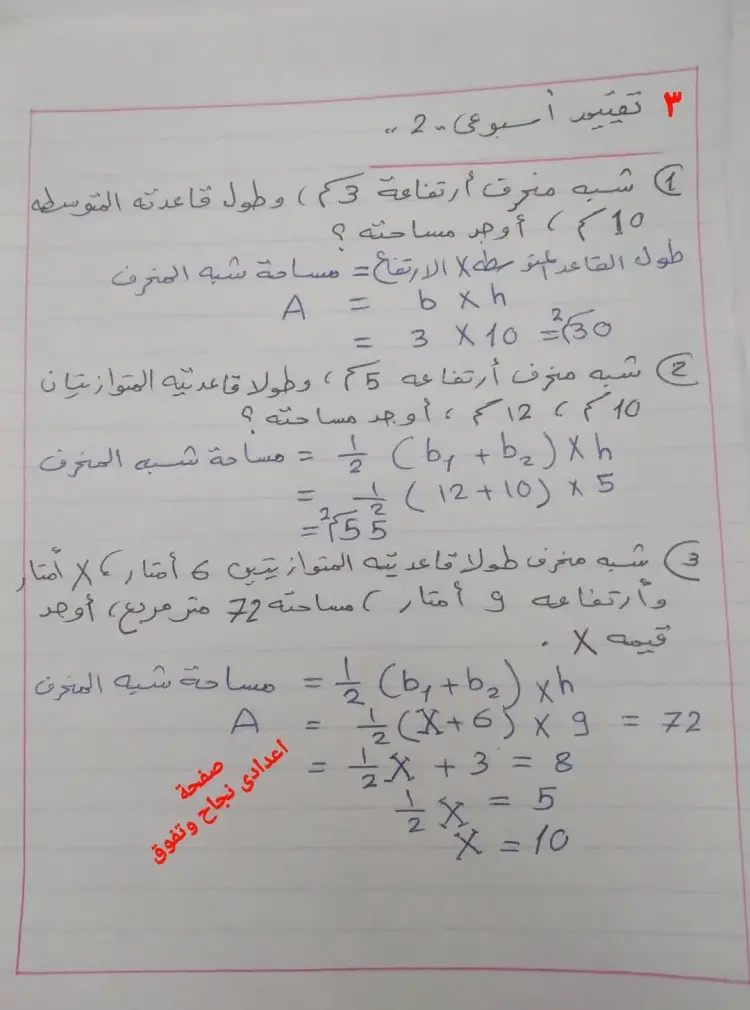 ٣ تقييم أسبوعى "2"
① شبه منحرف أرتفاعة 3سم ، وطول قاعدته المتوسطه
10سم ، أوجد مساحته ؟
مساحة شبه المنحرف = طول القاعدة المتوسطه X الارتفاع
A = b X h
= 3 X 10 = 30سم²
② شبه منحرف أرتفاعه 5سم ، وطولا قاعدتيه المتوازيتان
10سم ، 12سم ، أوجد مساحته ؟
مساحة شبه المنحرف = 1/2 (b1 + b2) X h
= 1/2 (12 + 10) X 5
= 55سم²
③ شبه منحرف طولا قاعدتيه المتوازيتين 6 أمتار ، X أمتار
وأرتفاعه 9 أمتار ، مساحته 72 متر مربع ، أوجد
قيمه X .
مساحة شبه المنحرف = 1/2 (b1 + b2) X h
A = 1/2 (X + 6) X 9 = 72
= 1/2 X + 3 = 8
1/2 X = 5
X = 10
صفحة
اعدادى نجاح وتفوق